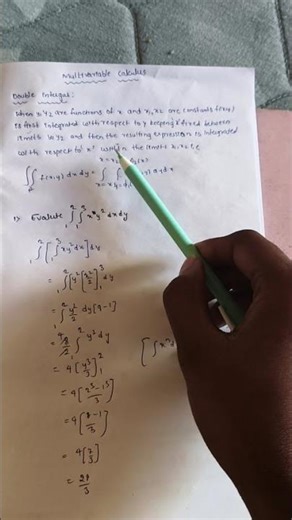 Multivariable Calculus
Double Integral:
When y1 y2 are functions of x and x1, x2 are constants f(x,y)
is first integrated with respect to y keeping x fixed between
limits y1 y2 and then the resulting expression is integrated
with respect to 'x' within the limits x1, x2 i.e
∬ f(x,y) dx dy = ∫ ∫ y) dy dx
1) Evaluate ∫₁² ∫₁³ xy² dx dy
∫₁² [∫₁³ xy² dx] dy
= ∫₁² [y² [x²/2]₁³ dy
= ∫₁² y²/2 dy [9-1]
= 8/2 ∫₁² y² dy
= 4 [y³/3]₁²
= 4 [2³-1³/3]
= 4 [8-1/3]
= 4 [7/3]
= 28/3
[∫xⁿ